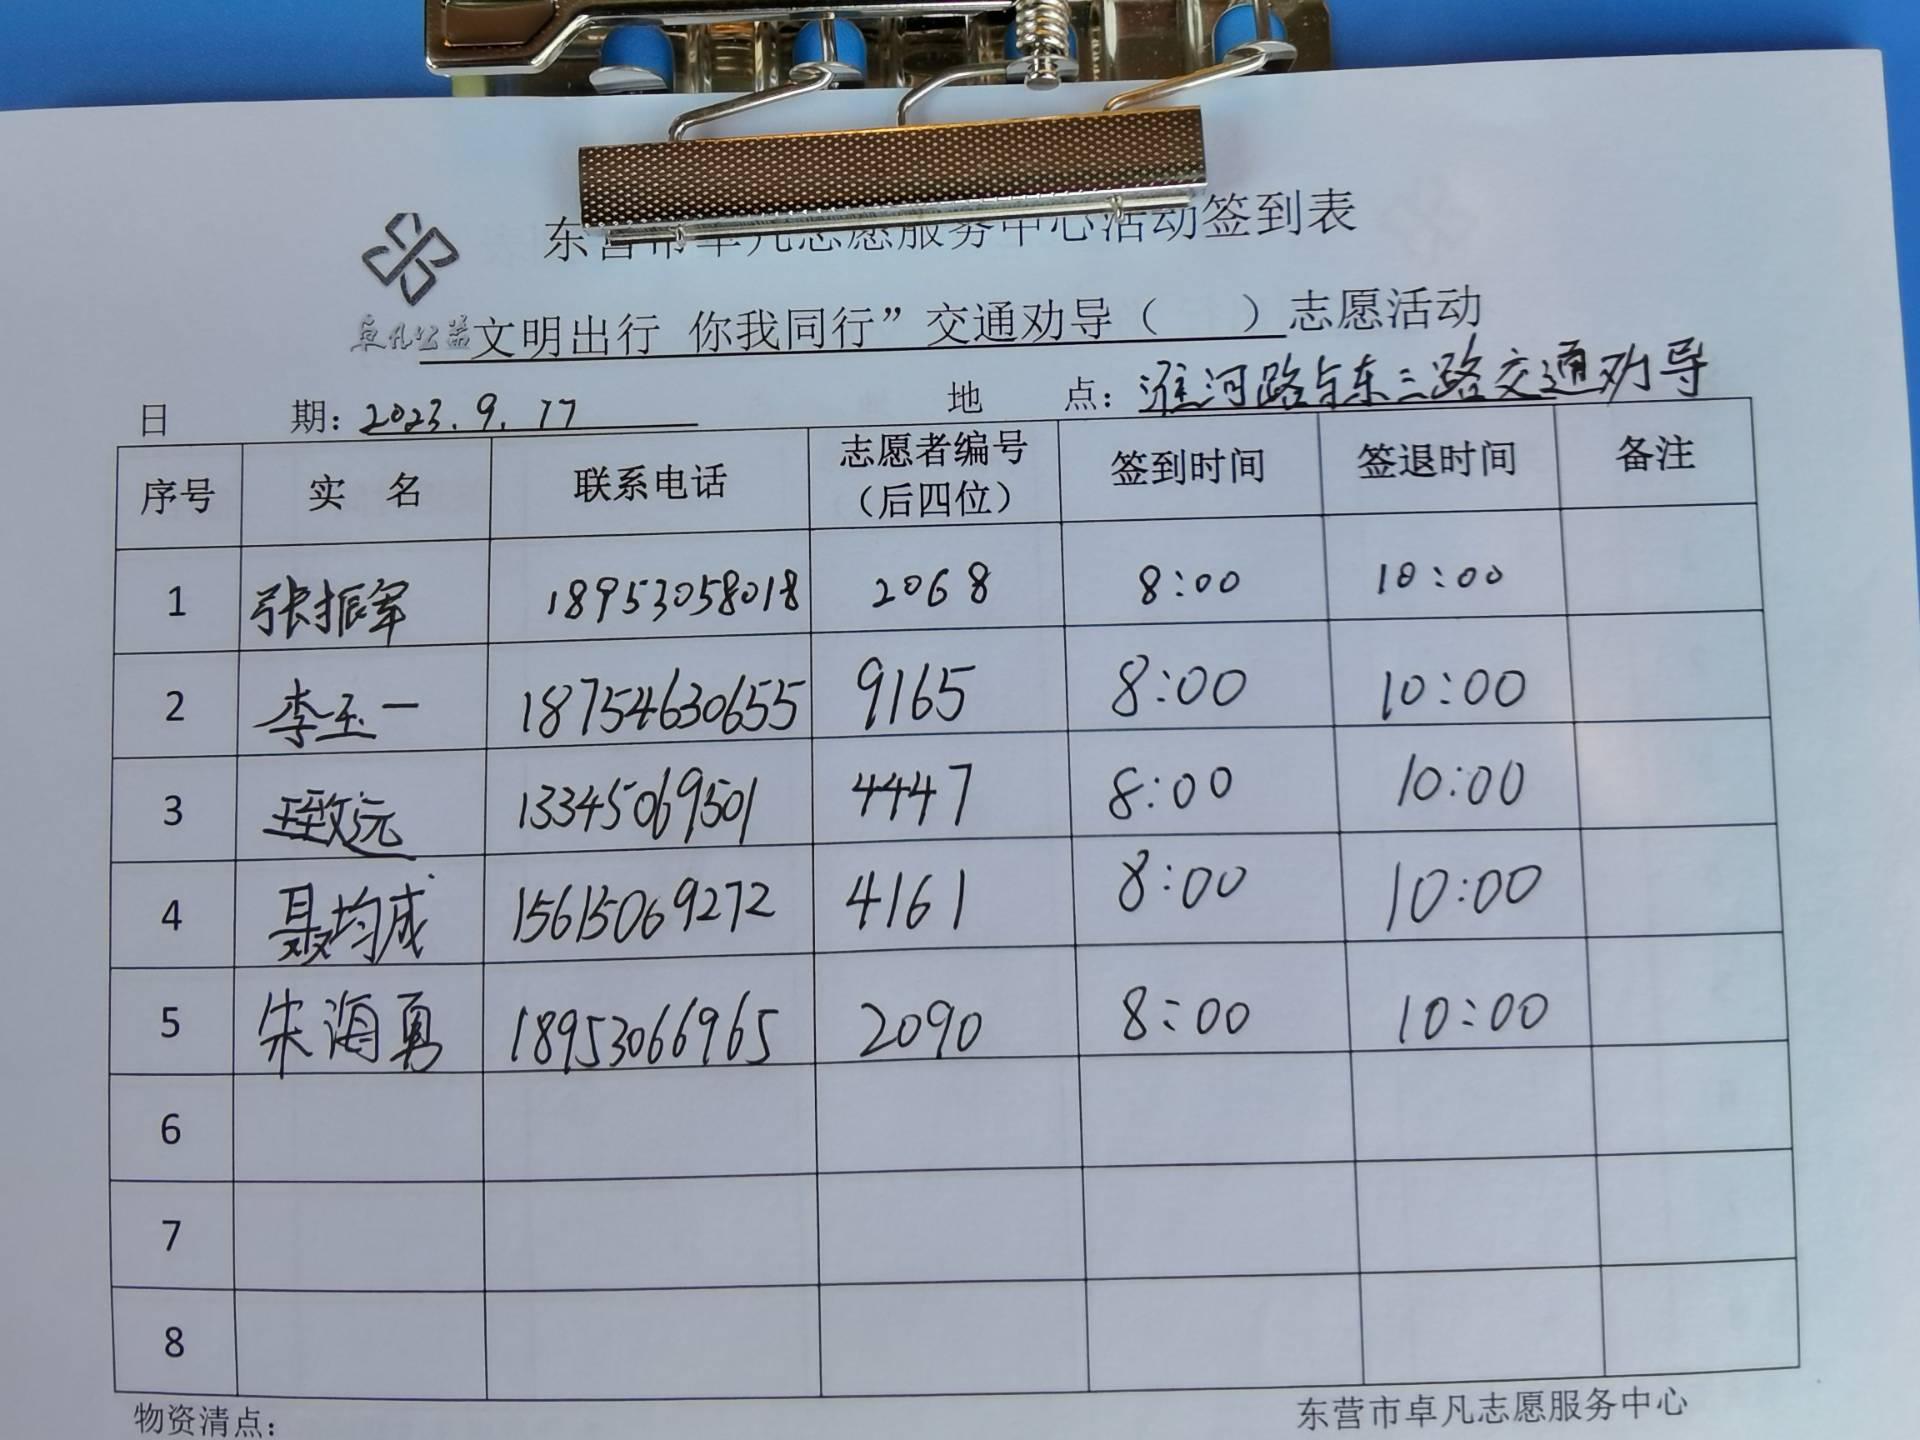 东营市卓凡志愿服务中心活动签到表
卓凡公益
文明出行 你我同行”交通劝导（ ）志愿活动
日 期：2023.9.17 地 点：淮河路与东三路交通劝导
序号 实 名 联系电话 志愿者编号（后四位） 签到时间 签退时间 备注
1 张振军 18953058018 2068 8:00 10:00
2 李玉一 18754630655 9165 8:00 10:00
3 王致远 13345069501 4447 8:00 10:00
4 聂均成 15615069272 4161 8:00 10:00
5 朱海勇 18953066965 2090 8:00 10:00
6
7
8
物资清点： 东营市卓凡志愿服务中心